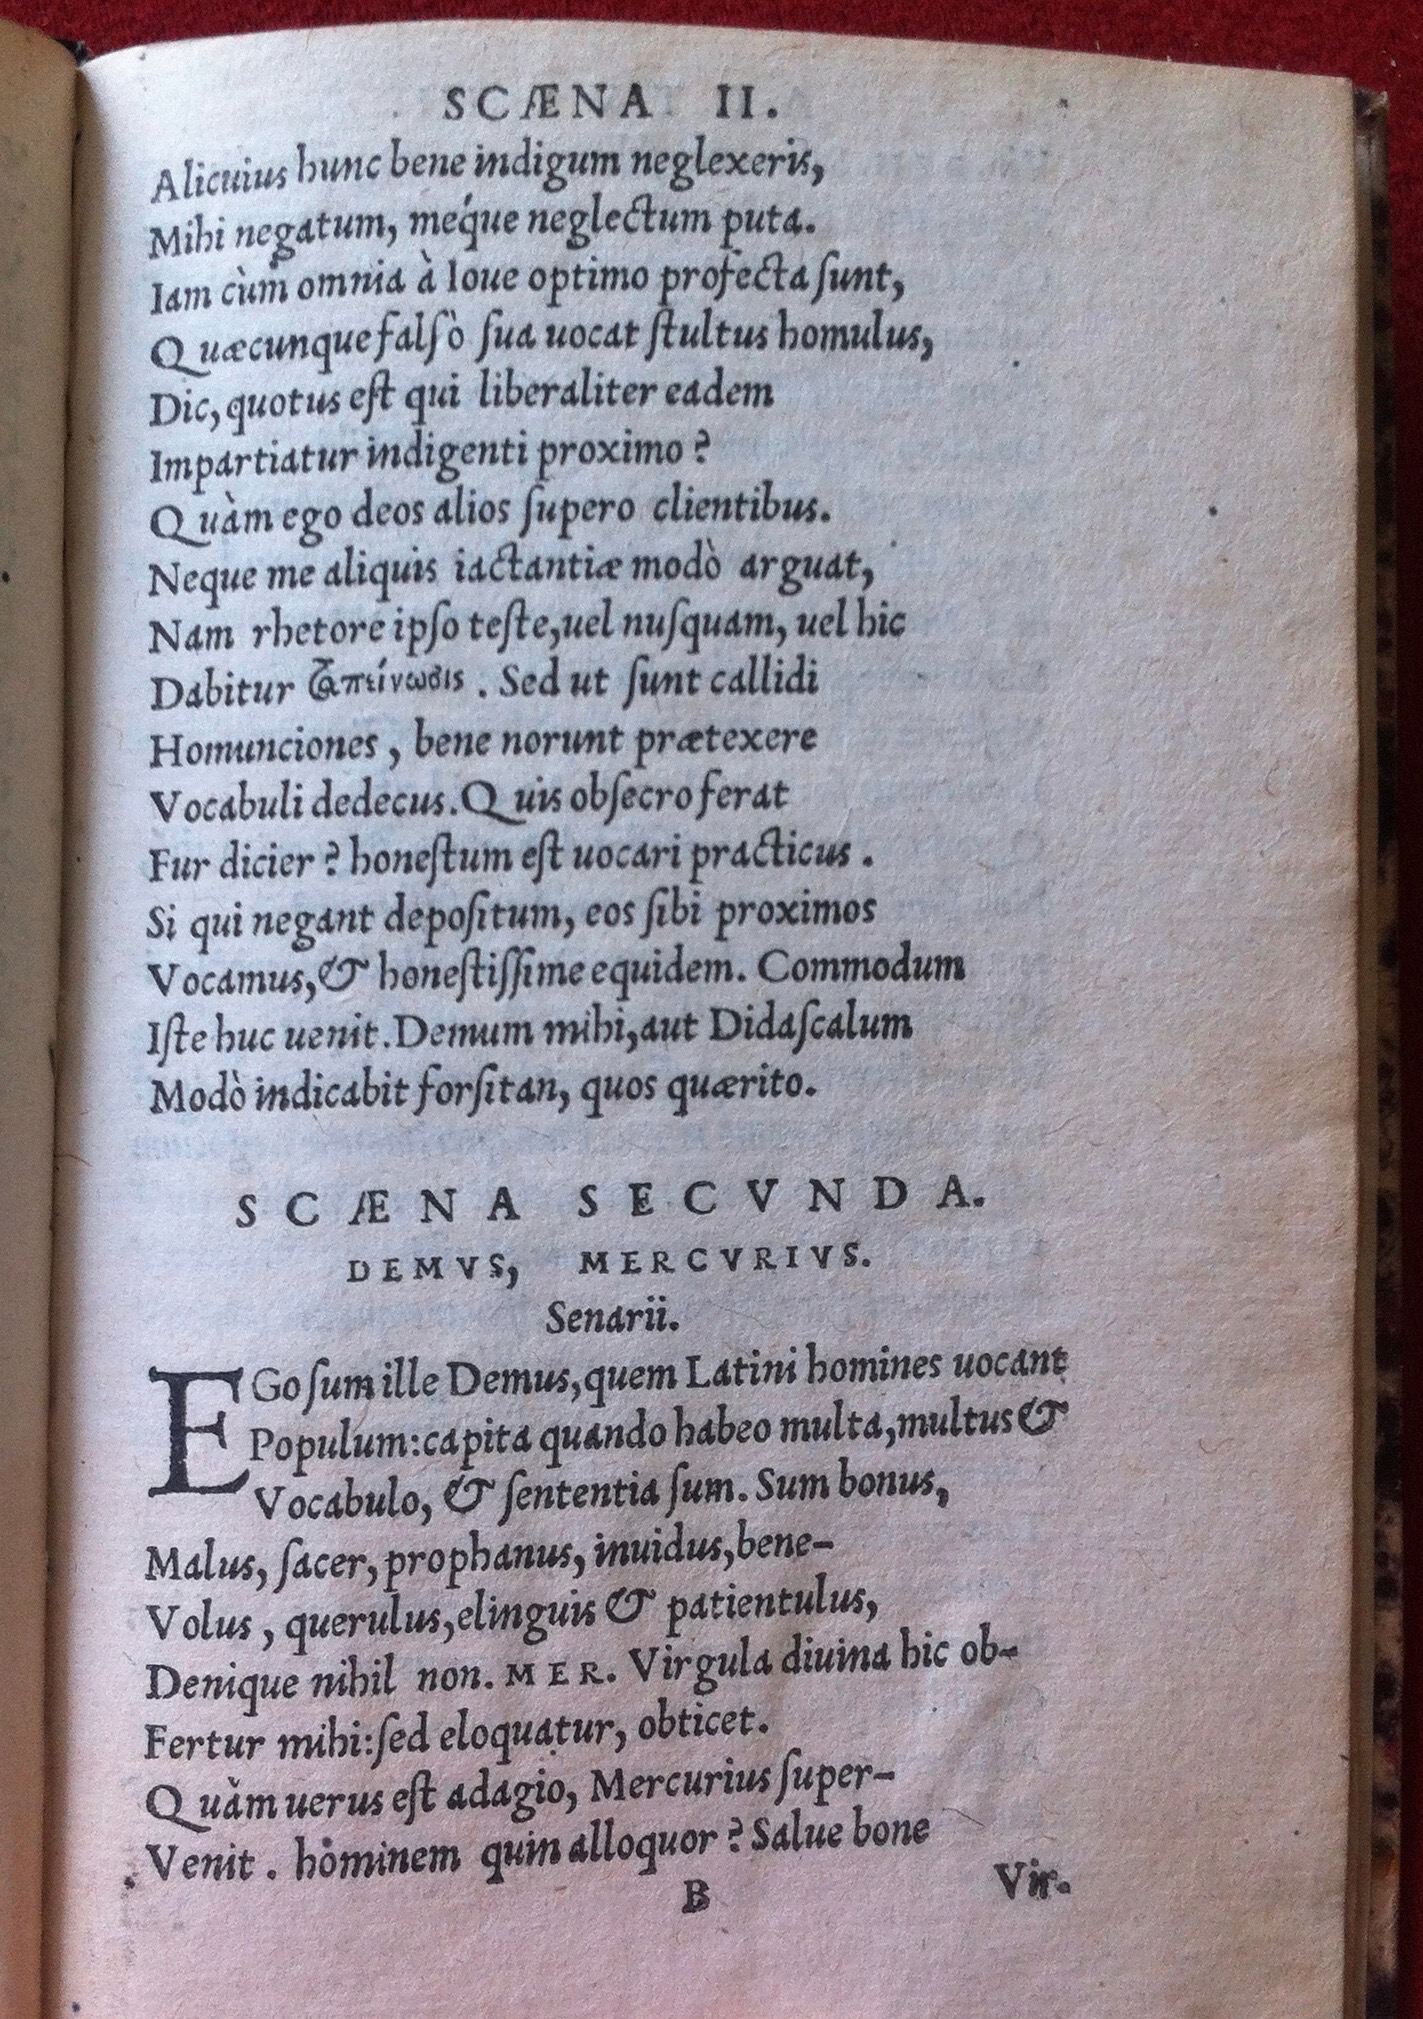 SCÆNA II.
Alicuius hunc bene indigum neglexeris,
Mihi negatum, meq́ue neglectum puta.
Iam cùm omnia à Ioue optimo profecta ſunt,
Quæcunque falſò ſua uocat ſtultus homulus,
Dic, quotus eſt qui liberaliter eadem
Impartiatur indigenti proximo?
Quàm ego deos alios ſupero clientibus.
Neque me aliquis iactantiæ modò arguat,
Nam rhetore ipſo teſte, uel nuſquam, uel hic
Dabitur ταπείνωσις. Sed ut ſunt callidi
Homunciones, bene norunt prætexere
Vocabuli dedecus. Quis obſecro ferat
Fur dicier? honeſtum eſt uocari practicus.
Si qui negant depoſitum, eos ſibi proximos
Vocamus, & honeſtiſſime equidem. Commodum
Iſte huc uenit. Demum mihi, aut Didaſcalum
Modò indicabit forſitan, quos quærito.
SCÆNA SECVNDA.
DEMVS, MERCVRIVS.
Senarii.
EGo ſum ille Demus, quem Latini homines uocant
Populum: capita quando habeo multa, multus &
Vocabulo, & ſententia ſum. Sum bonus,
Malus, ſacer, prophanus, inuidus, bene-
Volus, querulus, elinguis & patientulus,
Denique nihil non. MER. Virgula diuina hic ob-
Fertur mihi: ſed eloquatur, obticet.
Quàm uerus eſt adagio, Mercurius ſuper-
Venit. hominem quin alloquor? Salue bone
B Vir.